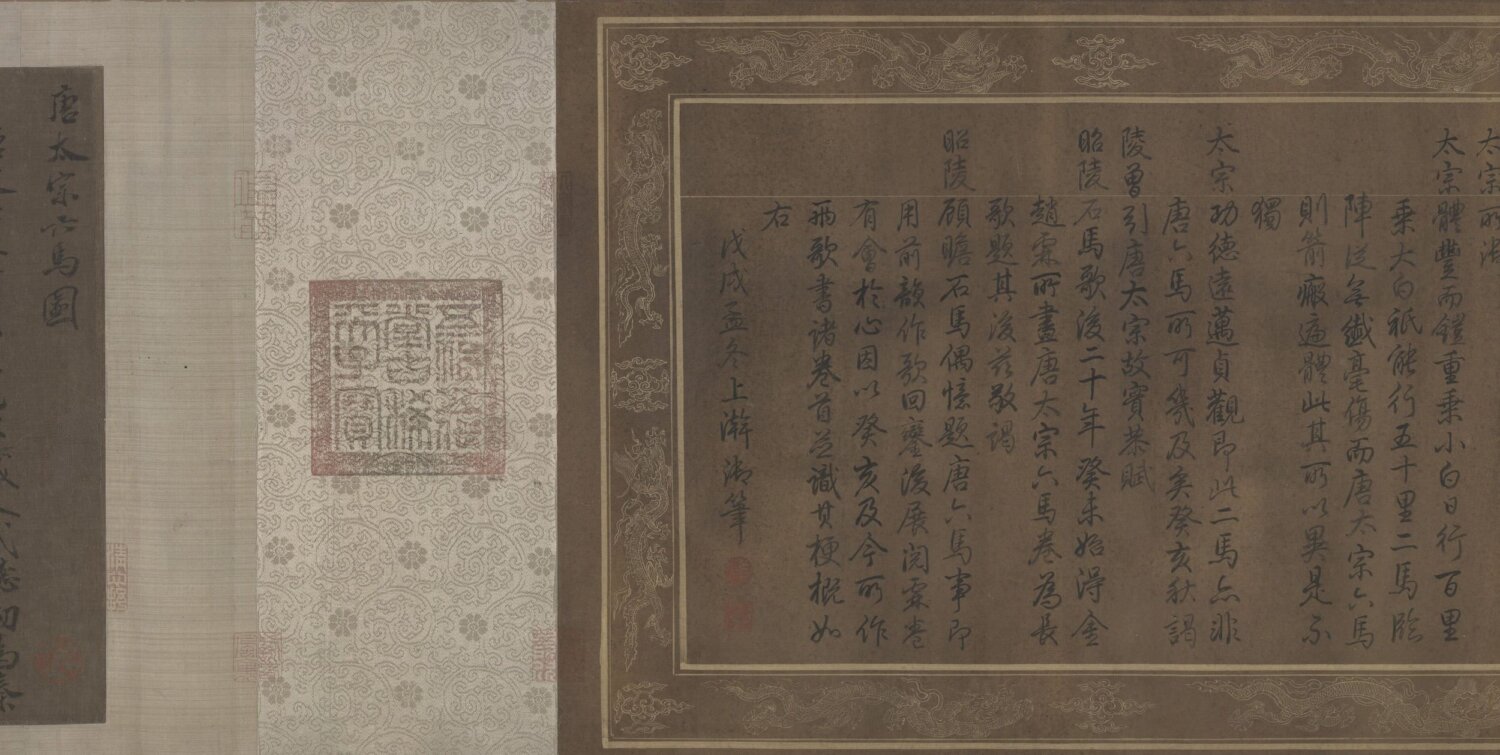 太宗所
太宗體豐而鎧重乗小白日行百里
乗大白祇能行五十里二馬臨
陣從無纖毫傷而唐太宗六馬
則箭瘢遍體此其所以異是不
獨
太宗功德遠邁貞觀即此二馬亦非
唐六馬所可幾及矣癸亥秋謁
陵曾引唐太宗故實恭賦
昭陵石馬歌後二十年癸未始得金
趙霖所畫唐太宗六馬卷為長
歌題其後茲敬謁
昭陵顧瞻石馬偶憶題唐六馬事即
用前韻作歌回鑾後展閱霖卷
有會於心因以癸亥及今所作
兩歌書諸卷首並識其梗概如
右
戊戌孟冬上澣御筆
五福五代
堂古稀
天子寶
唐太宗六馬圖